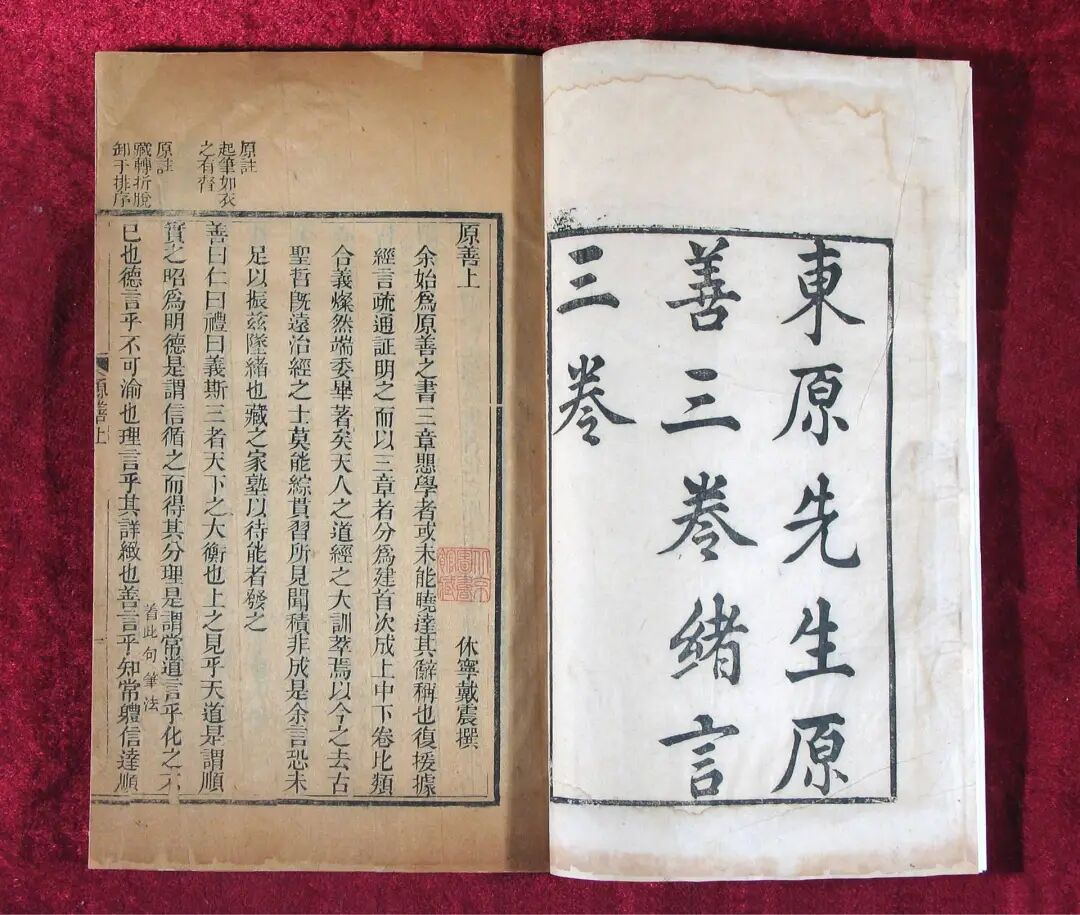 東原先生原
善三卷緒言
三卷
原善上
休寧戴震撰
余始爲原善之書三章懼學者或未能曉達其辭稱也復援據
經言疏通証明之而以三章者分爲建首次成上中下卷比類
合義燦然端委畢著矣天人之道經之大訓萃焉以今之去古
聖哲旣遠治經之士莫能綜貫習所見聞積非成是余言恐未
足以振茲墜緒也藏之家塾以待能者發之
原註
起筆如衣
之有督
善曰仁曰禮曰義斯三者天下之大衡也上之見乎天道是謂順
原註
轉折脫
卸于排序
實之昭爲明德是謂信循之而得其分理是謂常道言乎化之不
着此句筆法
已也德言乎不可渝也理言乎其詳緻也善言乎知常體信達順
原善上